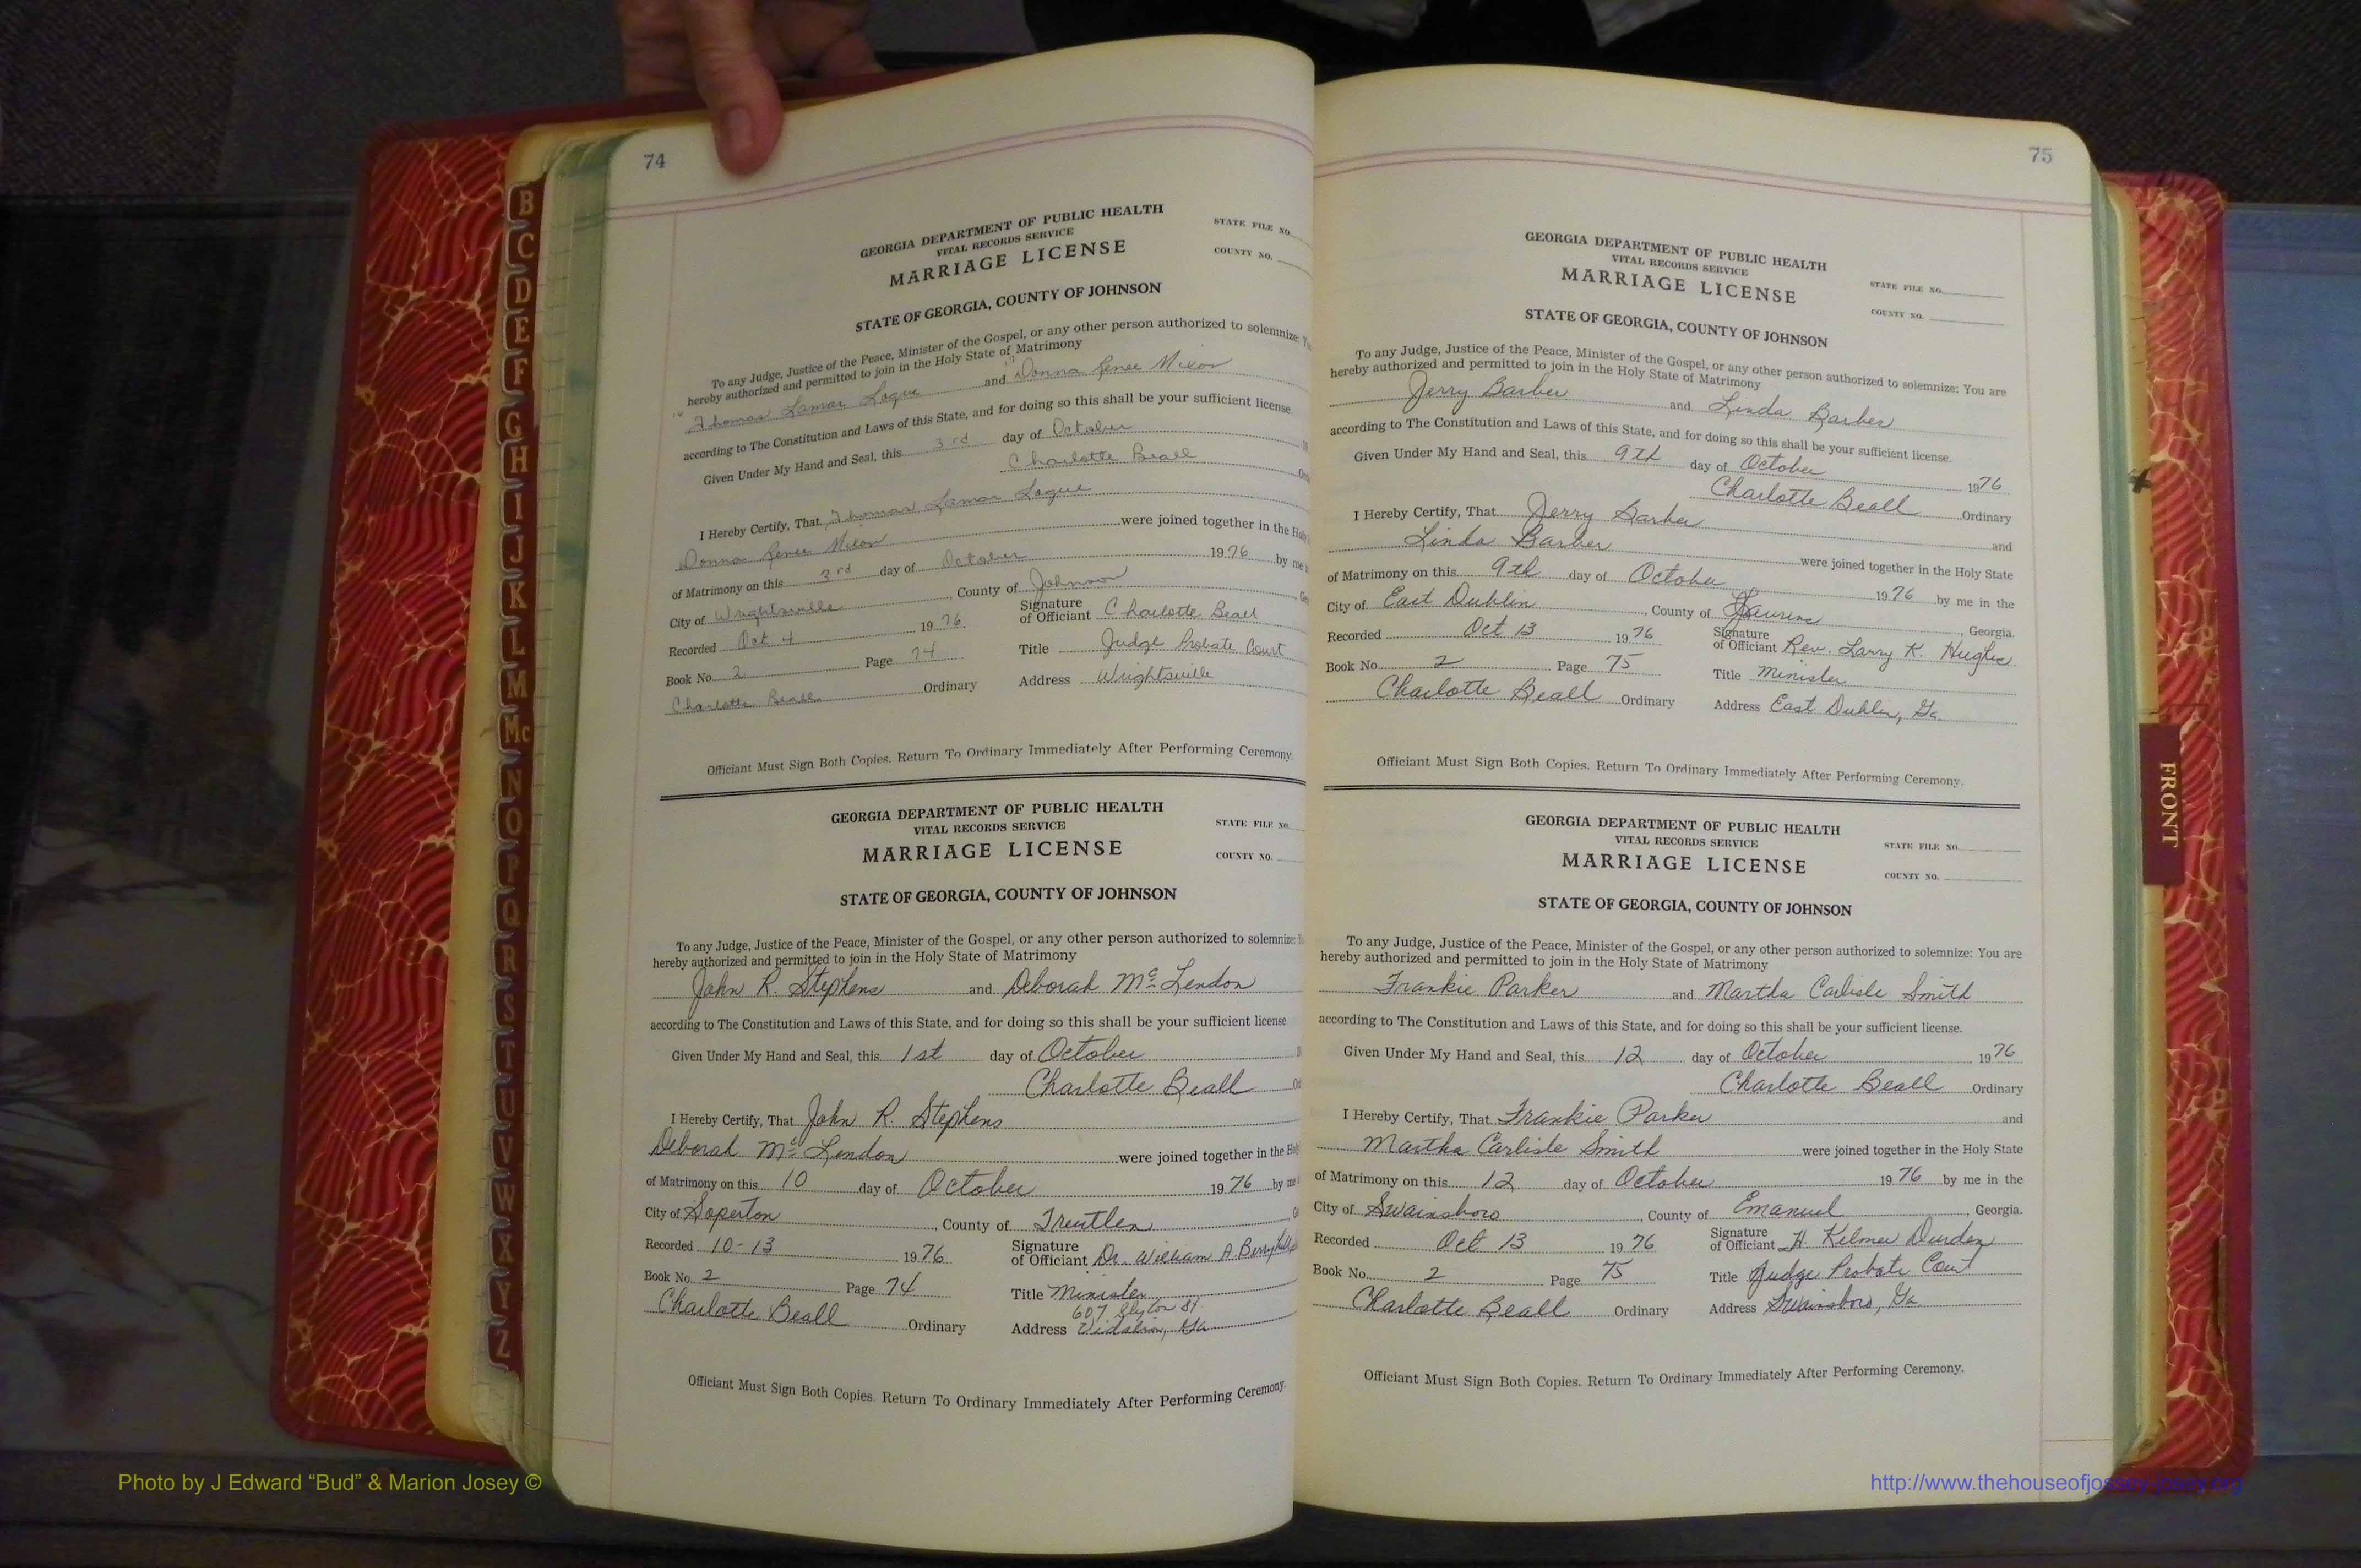 74
GEORGIA DEPARTMENT OF PUBLIC HEALTH
VITAL RECORDS SERVICE
MARRIAGE LICENSE
STATE FILE NO.
COUNTY NO.
STATE OF GEORGIA, COUNTY OF JOHNSON
To any Judge, Justice of the Peace, Minister of the Gospel, or any other person authorized to solemnize:
hereby authorized and permitted to join in the Holy State of Matrimony
Thomas Lamar Logue and Donna Renee Mixon
according to The Constitution and Laws of this State, and for doing so this shall be your sufficient license
Given Under My Hand and Seal, this 3rd day of October
Charlotte Beall
I Hereby Certify, That Thomas Lamar Logue
Donna Renee Mixon were joined together in the
of Matrimony on this 3rd day of October 1976 by me
City of Wrightsville, County of Johnson
Recorded Oct 4 1976 Signature of Officiant Charlotte Beall
Book No. 2 Page 74 Title Judge Probate Court
Charlotte Beall Ordinary Address Wrightsville
Officiant Must Sign Both Copies. Return To Ordinary Immediately After Performing Ceremony.
GEORGIA DEPARTMENT OF PUBLIC HEALTH
VITAL RECORDS SERVICE
MARRIAGE LICENSE
STATE FILE NO.
COUNTY NO.
STATE OF GEORGIA, COUNTY OF JOHNSON
To any Judge, Justice of the Peace, Minister of the Gospel, or any other person authorized to solemnize:
hereby authorized and permitted to join in the Holy State of Matrimony
John R. Stephens and Deborah McLendon
according to The Constitution and Laws of this State, and for doing so this shall be your sufficient license
Given Under My Hand and Seal, this 1st day of October
Charlotte Beall
I Hereby Certify, That John R. Stephens
Deborah McLendon were joined together in the
of Matrimony on this 10 day of October 1976 by me
City of Soperton, County of Treutlen
Recorded 10-13 1976 Signature of Officiant Dr. William A. Berryhill
Book No. 2 Page 74 Title Minister
607 St
Charlotte Beall Ordinary Address Vidalia, Ga
Officiant Must Sign Both Copies. Return To Ordinary Immediately After Performing Ceremony.
75
GEORGIA DEPARTMENT OF PUBLIC HEALTH
VITAL RECORDS SERVICE
MARRIAGE LICENSE
STATE FILE NO.
COUNTY NO.
STATE OF GEORGIA, COUNTY OF JOHNSON
To any Judge, Justice of the Peace, Minister of the Gospel, or any other person authorized to solemnize: You are
hereby authorized and permitted to join in the Holy State of Matrimony
Jerry Barber and Linda Barber
according to The Constitution and Laws of this State, and for doing so this shall be your sufficient license.
Given Under My Hand and Seal, this 9th day of October 1976
Charlotte Beall Ordinary
I Hereby Certify, That Jerry Barber and
Linda Barber were joined together in the Holy State
of Matrimony on this 9th day of October 1976 by me in the
City of East Dublin, County of Laurens, Georgia.
Recorded Oct 13 1976 Signature of Officiant Rev. Larry K. Hughes
Book No. 2 Page 75 Title Minister
Charlotte Beall Ordinary Address East Dublin, Ga.
Officiant Must Sign Both Copies. Return To Ordinary Immediately After Performing Ceremony.
GEORGIA DEPARTMENT OF PUBLIC HEALTH
VITAL RECORDS SERVICE
MARRIAGE LICENSE
STATE FILE NO.
COUNTY NO.
STATE OF GEORGIA, COUNTY OF JOHNSON
To any Judge, Justice of the Peace, Minister of the Gospel, or any other person authorized to solemnize: You are
hereby authorized and permitted to join in the Holy State of Matrimony
Frankie Parker and Martha Carlisle Smith
according to The Constitution and Laws of this State, and for doing so this shall be your sufficient license.
Given Under My Hand and Seal, this 12 day of October 1976
Charlotte Beall Ordinary
I Hereby Certify, That Frankie Parker and
Martha Carlisle Smith were joined together in the Holy State
of Matrimony on this 12 day of October 1976 by me in the
City of Swainsboro, County of Emanuel, Georgia.
Recorded Oct 13 1976 Signature of Officiant H Kilmer Durden
Book No. 2 Page 75 Title Judge Probate Court
Charlotte Beall Ordinary Address Swainsboro, Ga
Officiant Must Sign Both Copies. Return To Ordinary Immediately After Performing Ceremony.
B
C
D
E
F
G
H
I
J
K
L
M
Mc
N
O
P
Q
R
S
T
U
V
W
X
Y
Z
FRONT
Photo by J Edward “Bud” & Marion Josey ©
http://www.thehouseofjossey-josey.org